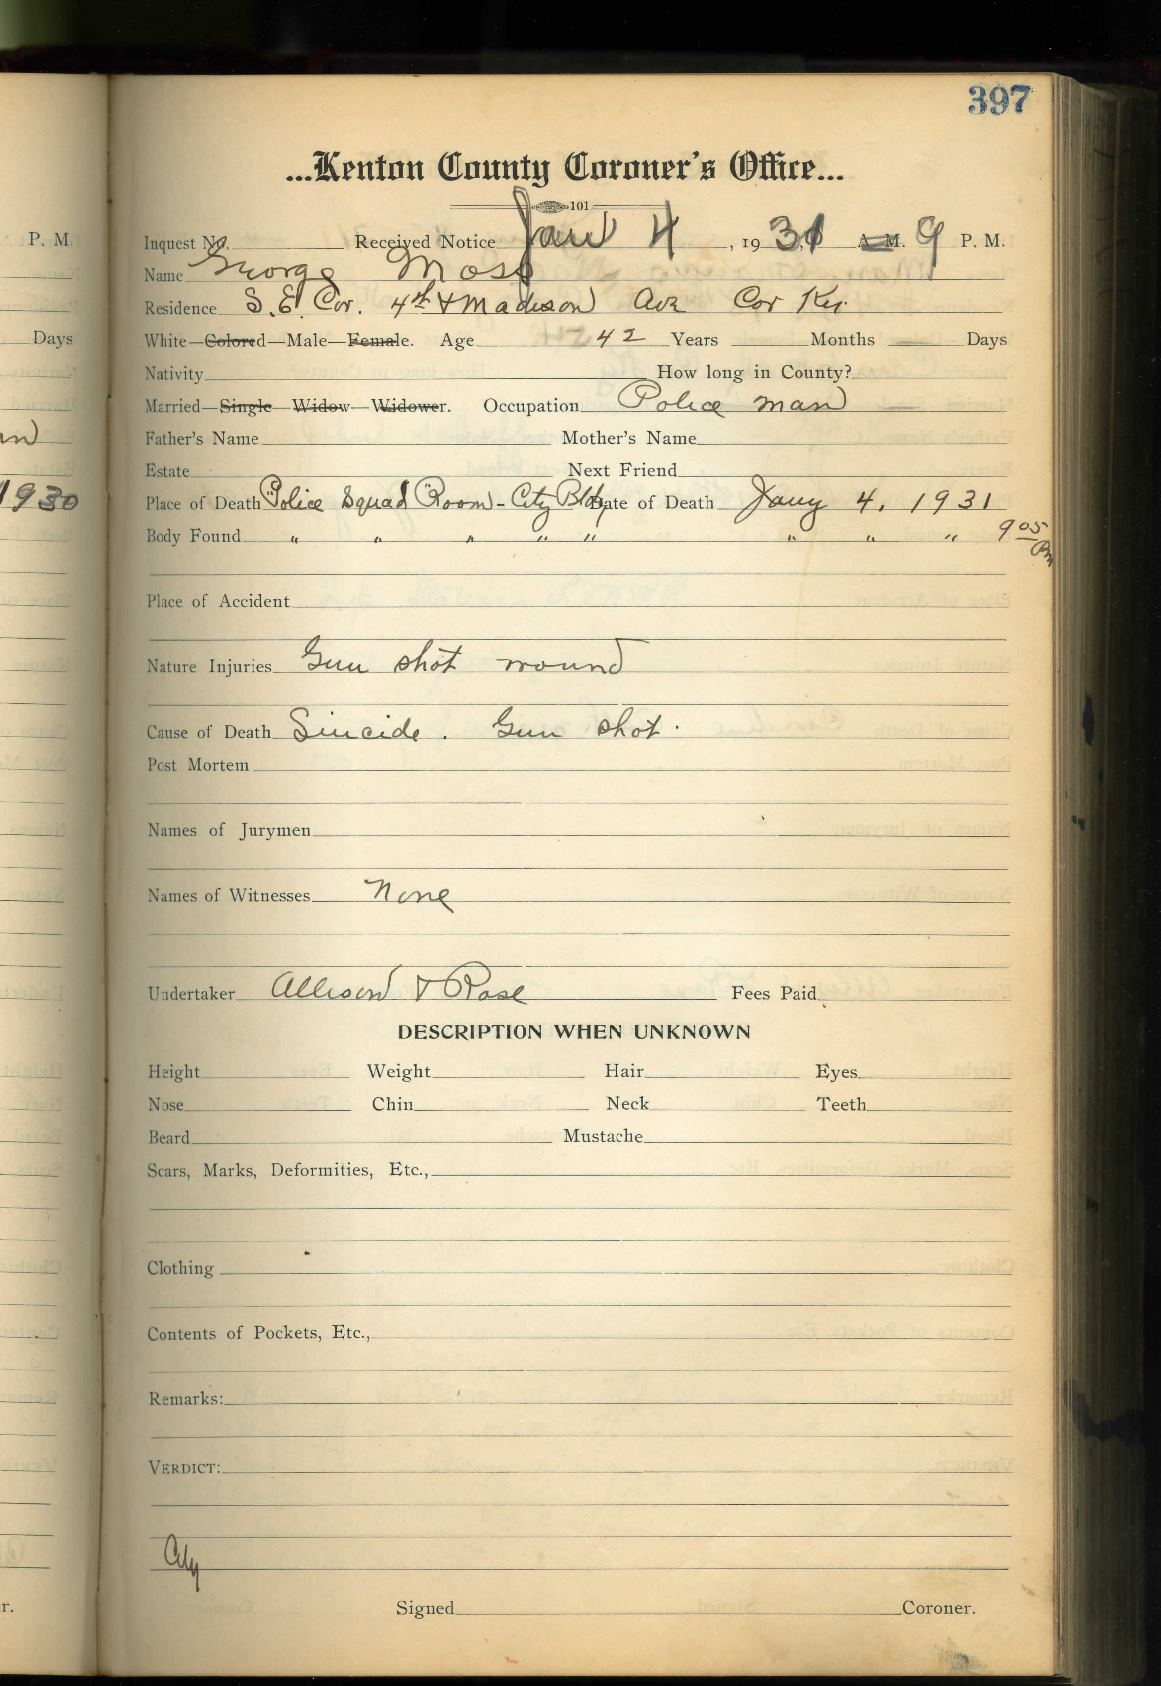 397
...Kenton County Coroner's Office...
101
Inquest No. Received Notice Jan 4, 1931 A. M. 9 P. M.
P. M.
Name George Moss
Residence S. E. Cor. 4th & Madison Ave Cov Ky.
White—Colored—Male—Female. Age 42 Years Months Days
Days
Nativity How long in County?
Married—Single—Widow—Widower. Occupation Police man
Father's Name Mother's Name
Estate Next Friend
1930
Place of Death Police Squad Room - City Bldg Date of Death Jany 4. 1931
Body Found " " " " " " " " 9 05 Pm
Place of Accident
Nature Injuries Gun shot wound
Cause of Death Suicide. Gun shot.
Post Mortem
Names of Jurymen
Names of Witnesses None
Undertaker Allison & Rose Fees Paid
DESCRIPTION WHEN UNKNOWN
Height Weight Hair Eyes
Nose Chin Neck Teeth
Beard Mustache
Scars, Marks, Deformities, Etc.,
Clothing
Contents of Pockets, Etc.,
Remarks:
VERDICT:
City
Signed Coroner.
r.